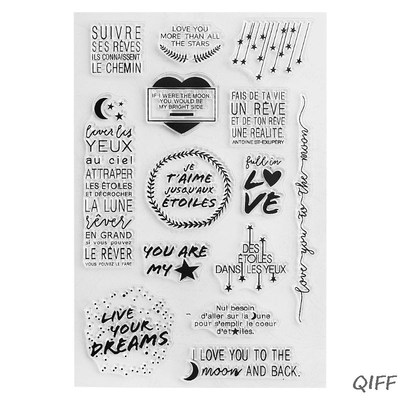 SUIVRE
SES RÊVES
ILS CONNAISSENT
LE CHEMIN
LOVE YOU
MORE THAN ALL
THE STARS
IF I WERE THE MOON
YOU WOULD BE
MY BRIGHT SIDE
FAIS DE TA VIE
UN RÊVE
ET DE TON RÊVE
UNE RÉALITÉ.
ANTOINE ST-EXUPÉRY
lever les
YEUX
au ciel
ATTRAPER
LES ÉTOILES
ET DÉCROCHER
LA LUNE
rêver
EN GRAND
si vous pouvez
LE RÊVER
VOUS POUVEZ LE FAIRE
JE
T'AIME
JUSQU'AUX
ÉTOILES
fall in
LOVE
love you to the moon
YOU ARE
MY
DES
ÉTOILES
DANS LES YEUX
LIVE
YOUR
DREAMS
Nul besoin
d'aller sur la lune
pour s'emplir le coeur
d'étoiles.
I LOVE YOU TO THE
moon AND BACK.
QIFF